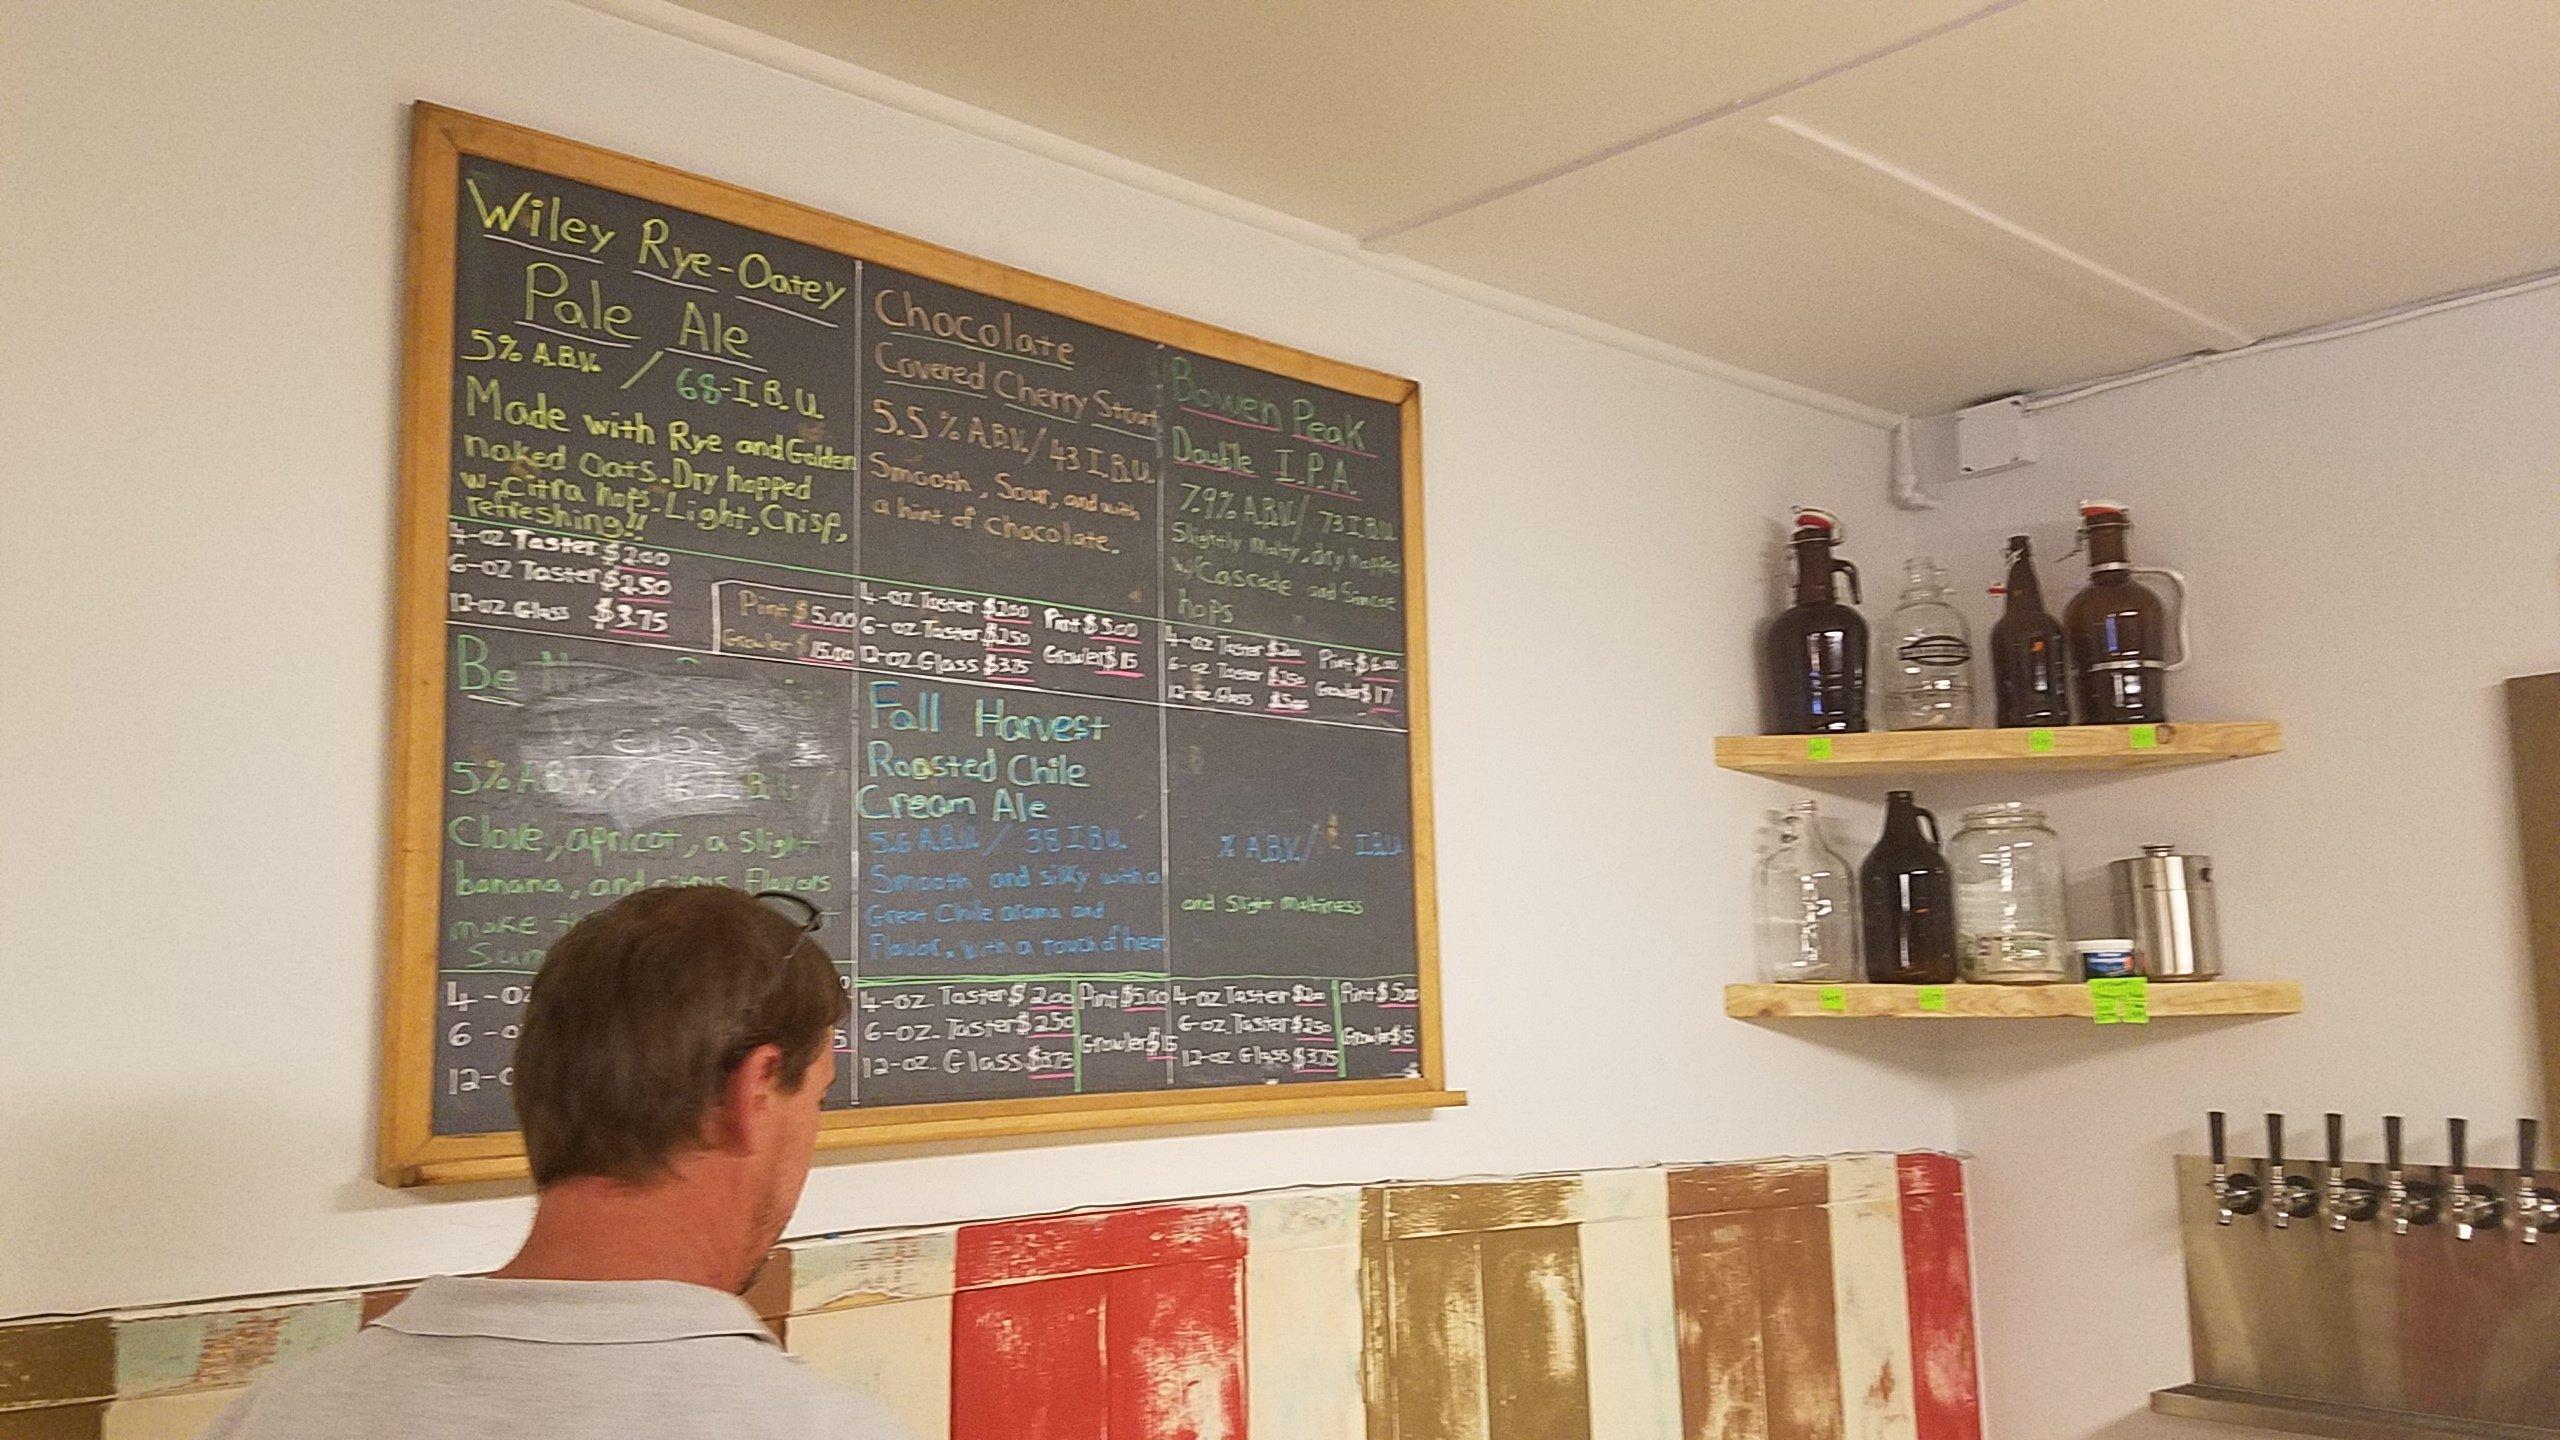 Wiley Rye-Oatey
Pale Ale
5% A.B.V. / 68-I.B.U.
Made with Rye and Golden
naked Oats. Dry hopped
w-Citra hops. Light, Crisp,
refreshing!!
4-oz Taster $2.00
6-oz Taster $2.50
12-oz Glass $3.75
Pint $5.00
Growler $15.00
Chocolate
Covered Cherry Stout
5.5% A.B.V./43 I.B.U.
Smooth, Sour, and with
a hint of chocolate.
4-oz Taster $2.00 Pint $5.00
6-oz Taster $2.50
12-oz Glass $3.75 Growler $15
Bowen Peak
Double I.P.A.
7.9% A.B.V./ 73 I.B.U.
Slightly Malty, dry hopped
w/Cascade and Simcoe
hops
4-oz Taster $2.00 Pint $6.00
6-oz Taster $2.50 Growler $17
12-oz Glass $5.00
Be
Weiss
5% A.B.V. / 16 I.B.U.
Clove, apricot, a slight
banana, and citrus Flavors
make
4-oz
6-o
12-o
Fall Harvest
Roasted Chile
Cream Ale
5.6 A.B.V. / 38 I.B.U.
Smooth and silky with a
Great Chile aroma and
Flavor, with a touch of heat
4-oz. Taster $2.00 Pint $5.00
6-oz. Taster $2.50 Growler $15
12-oz. Glass $3.75
% A.B.V./ I.B.U.
and slight maltiness
4-oz Taster $2.00 Pint $5.00
6-oz. Taster $2.50 Growler $15
12-oz Glass $3.75